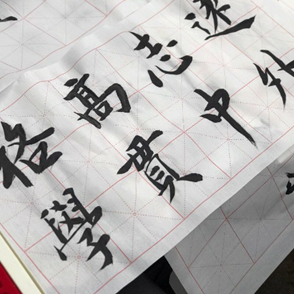 格高志远
學貫中外